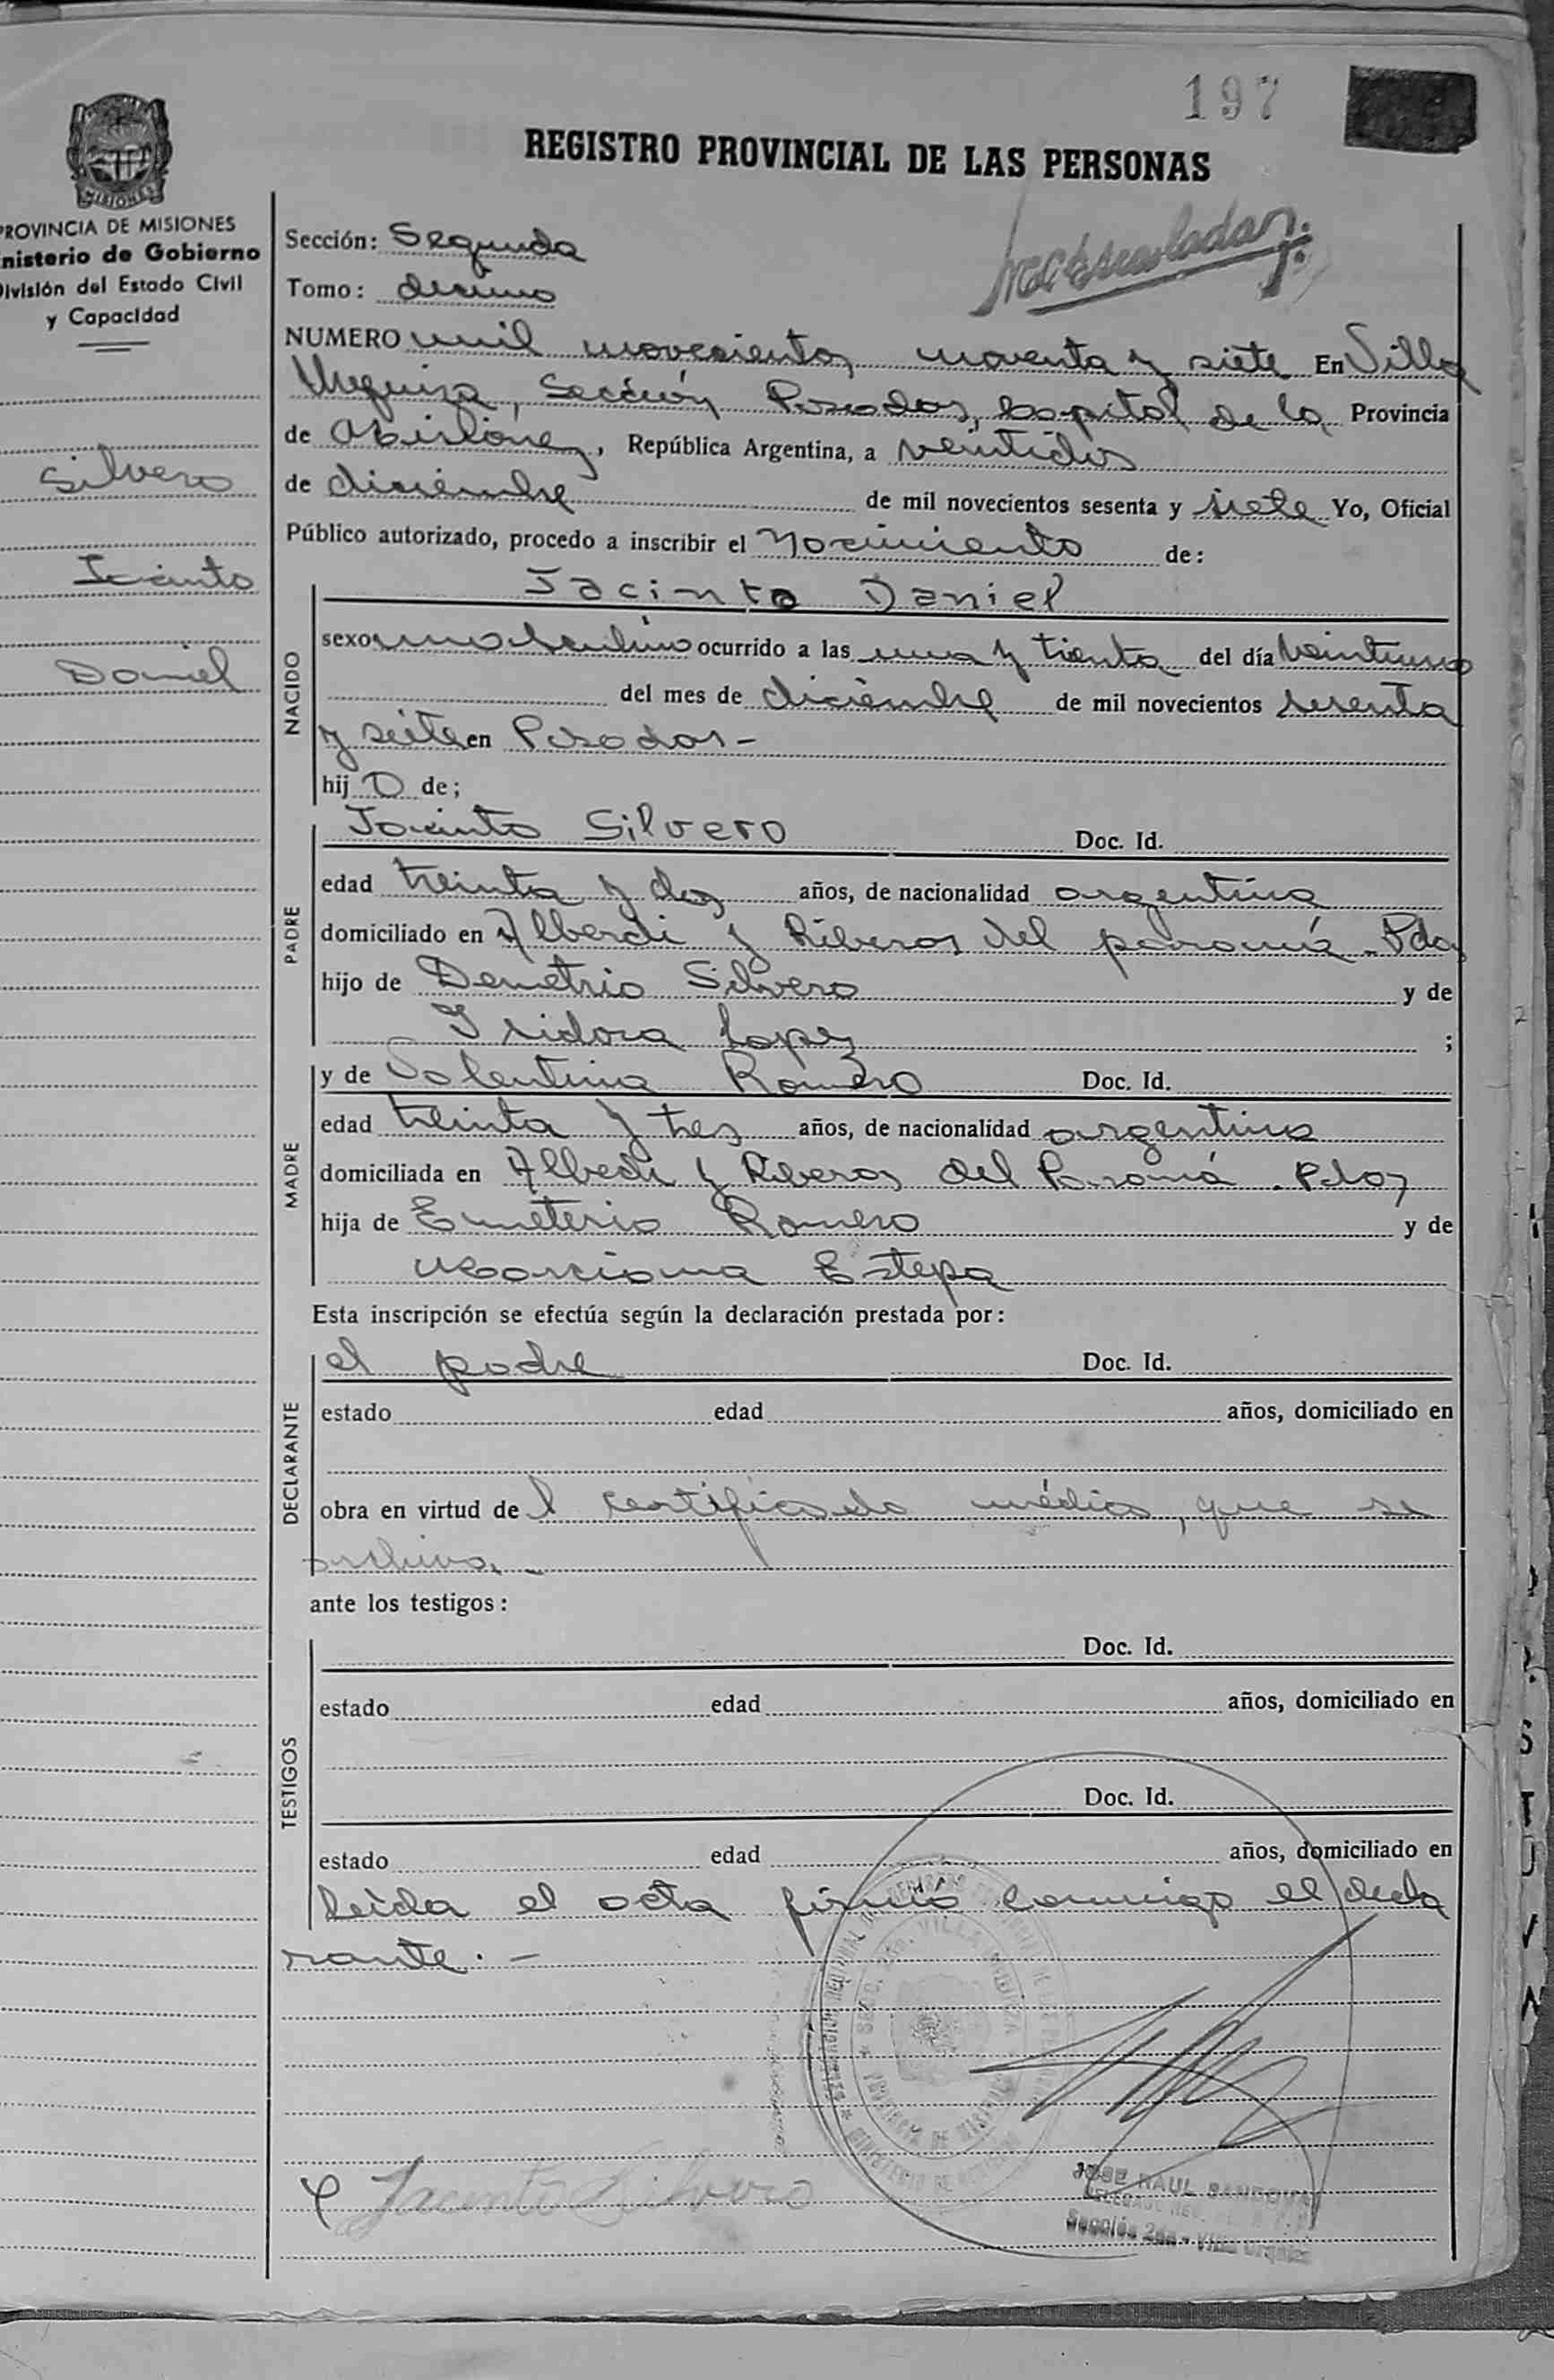 197
REGISTRO PROVINCIAL DE LAS PERSONAS
MISIONES
PROVINCIA DE MISIONES
nisterio de Gobierno
División del Estado Civil
y Capacidad
Silvero
Jacinto
Daniel
Sección: Segunda
Tomo: decimo
NUMERO mil novecientos noventa y siete En Villa
Urquiza, Sección Posadas, Capital de la Provincia
de Misiones, República Argentina, a veintidos
de diciembre de mil novecientos sesenta y siete Yo, Oficial
Público autorizado, procedo a inscribir el Nacimiento de:
Jacinto Daniel
NACIDO
sexo masculino ocurrido a las una y treinta del día veintiuno
del mes de diciembre de mil novecientos sesenta
y siete en Posadas -
hijo de;
PADRE
Jacinto Silvero Doc. Id.
edad treinta y dos años, de nacionalidad argentina
domiciliado en Alberdi y Riberas del paraná - Pdas
hijo de Demetrio Silvero y de
Isidora Lopez ;
MADRE
y de Valentina Romero Doc. Id.
edad treinta y tres años, de nacionalidad argentina
domiciliada en Alberdi y Riberas del Paraná - Pdas
hija de Emeterio Romero y de
Marciana Estepa
Esta inscripción se efectúa según la declaración prestada por:
DECLARANTE
el padre Doc. Id.
estado edad años, domiciliado en
obra en virtud del certificado médico, que se
archiva. -
ante los testigos:
TESTIGOS
Doc. Id.
estado edad años, domiciliado en
Doc. Id.
estado edad años, domiciliado en
Leída el acta firma conmigo el decla
rante. -
Jacinto Silvero
JOSE RAUL SANDOVAL
Sección 2da - Villa Urquiza